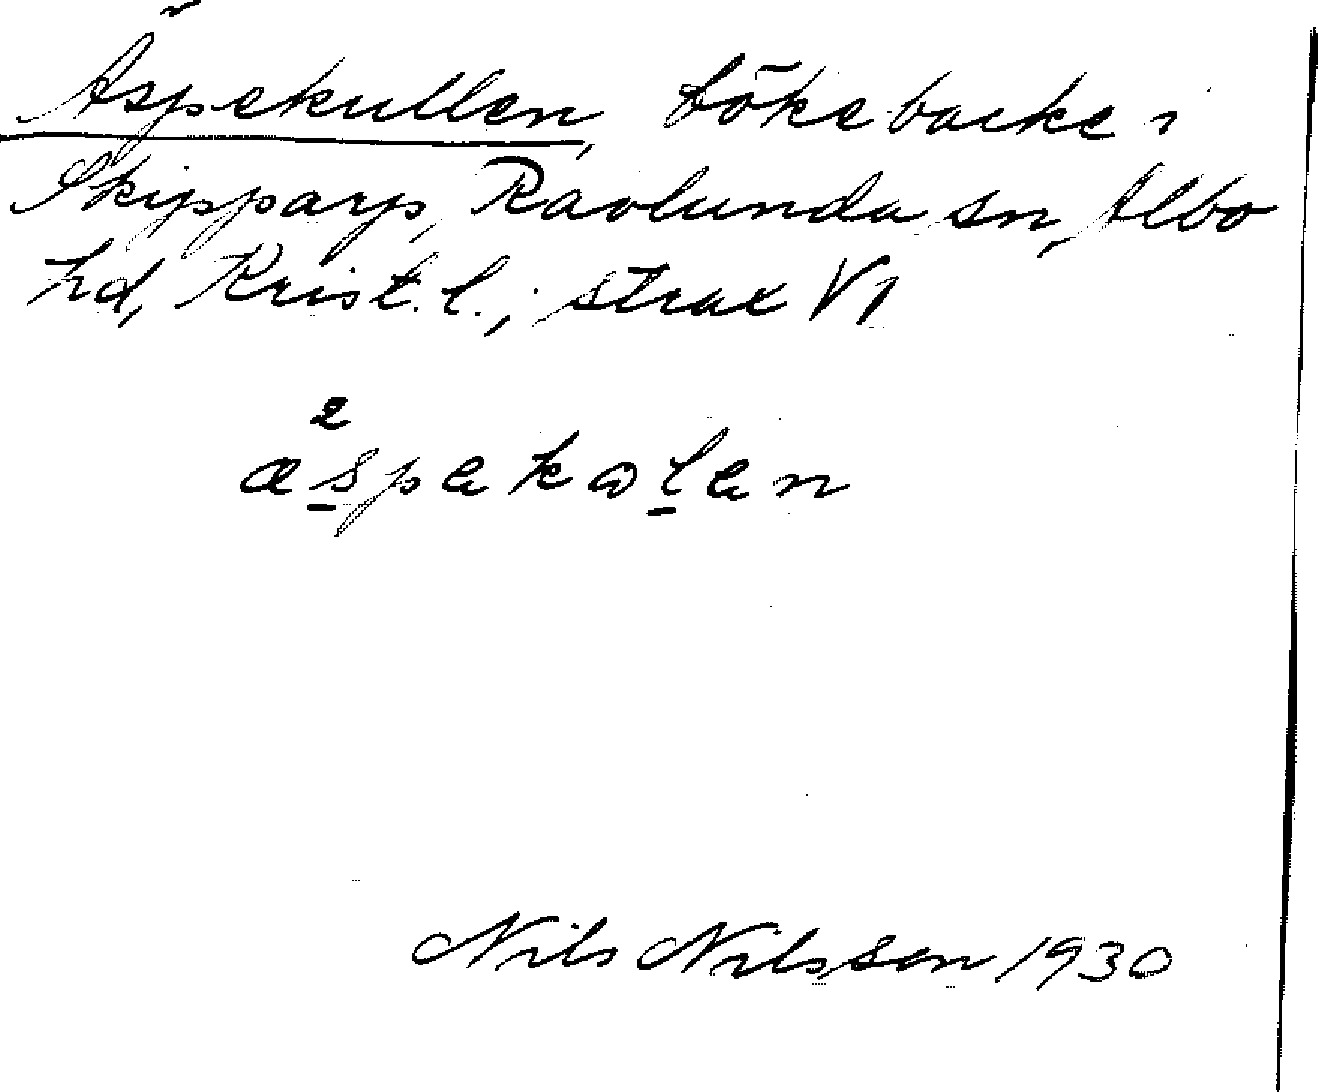 Äspekullen, bökebacke i
Skipparp, Ravlunda sn, Albo
hd, Krist. l.; strax V1
2
æspekɷlen
Nils Nilsson 1930